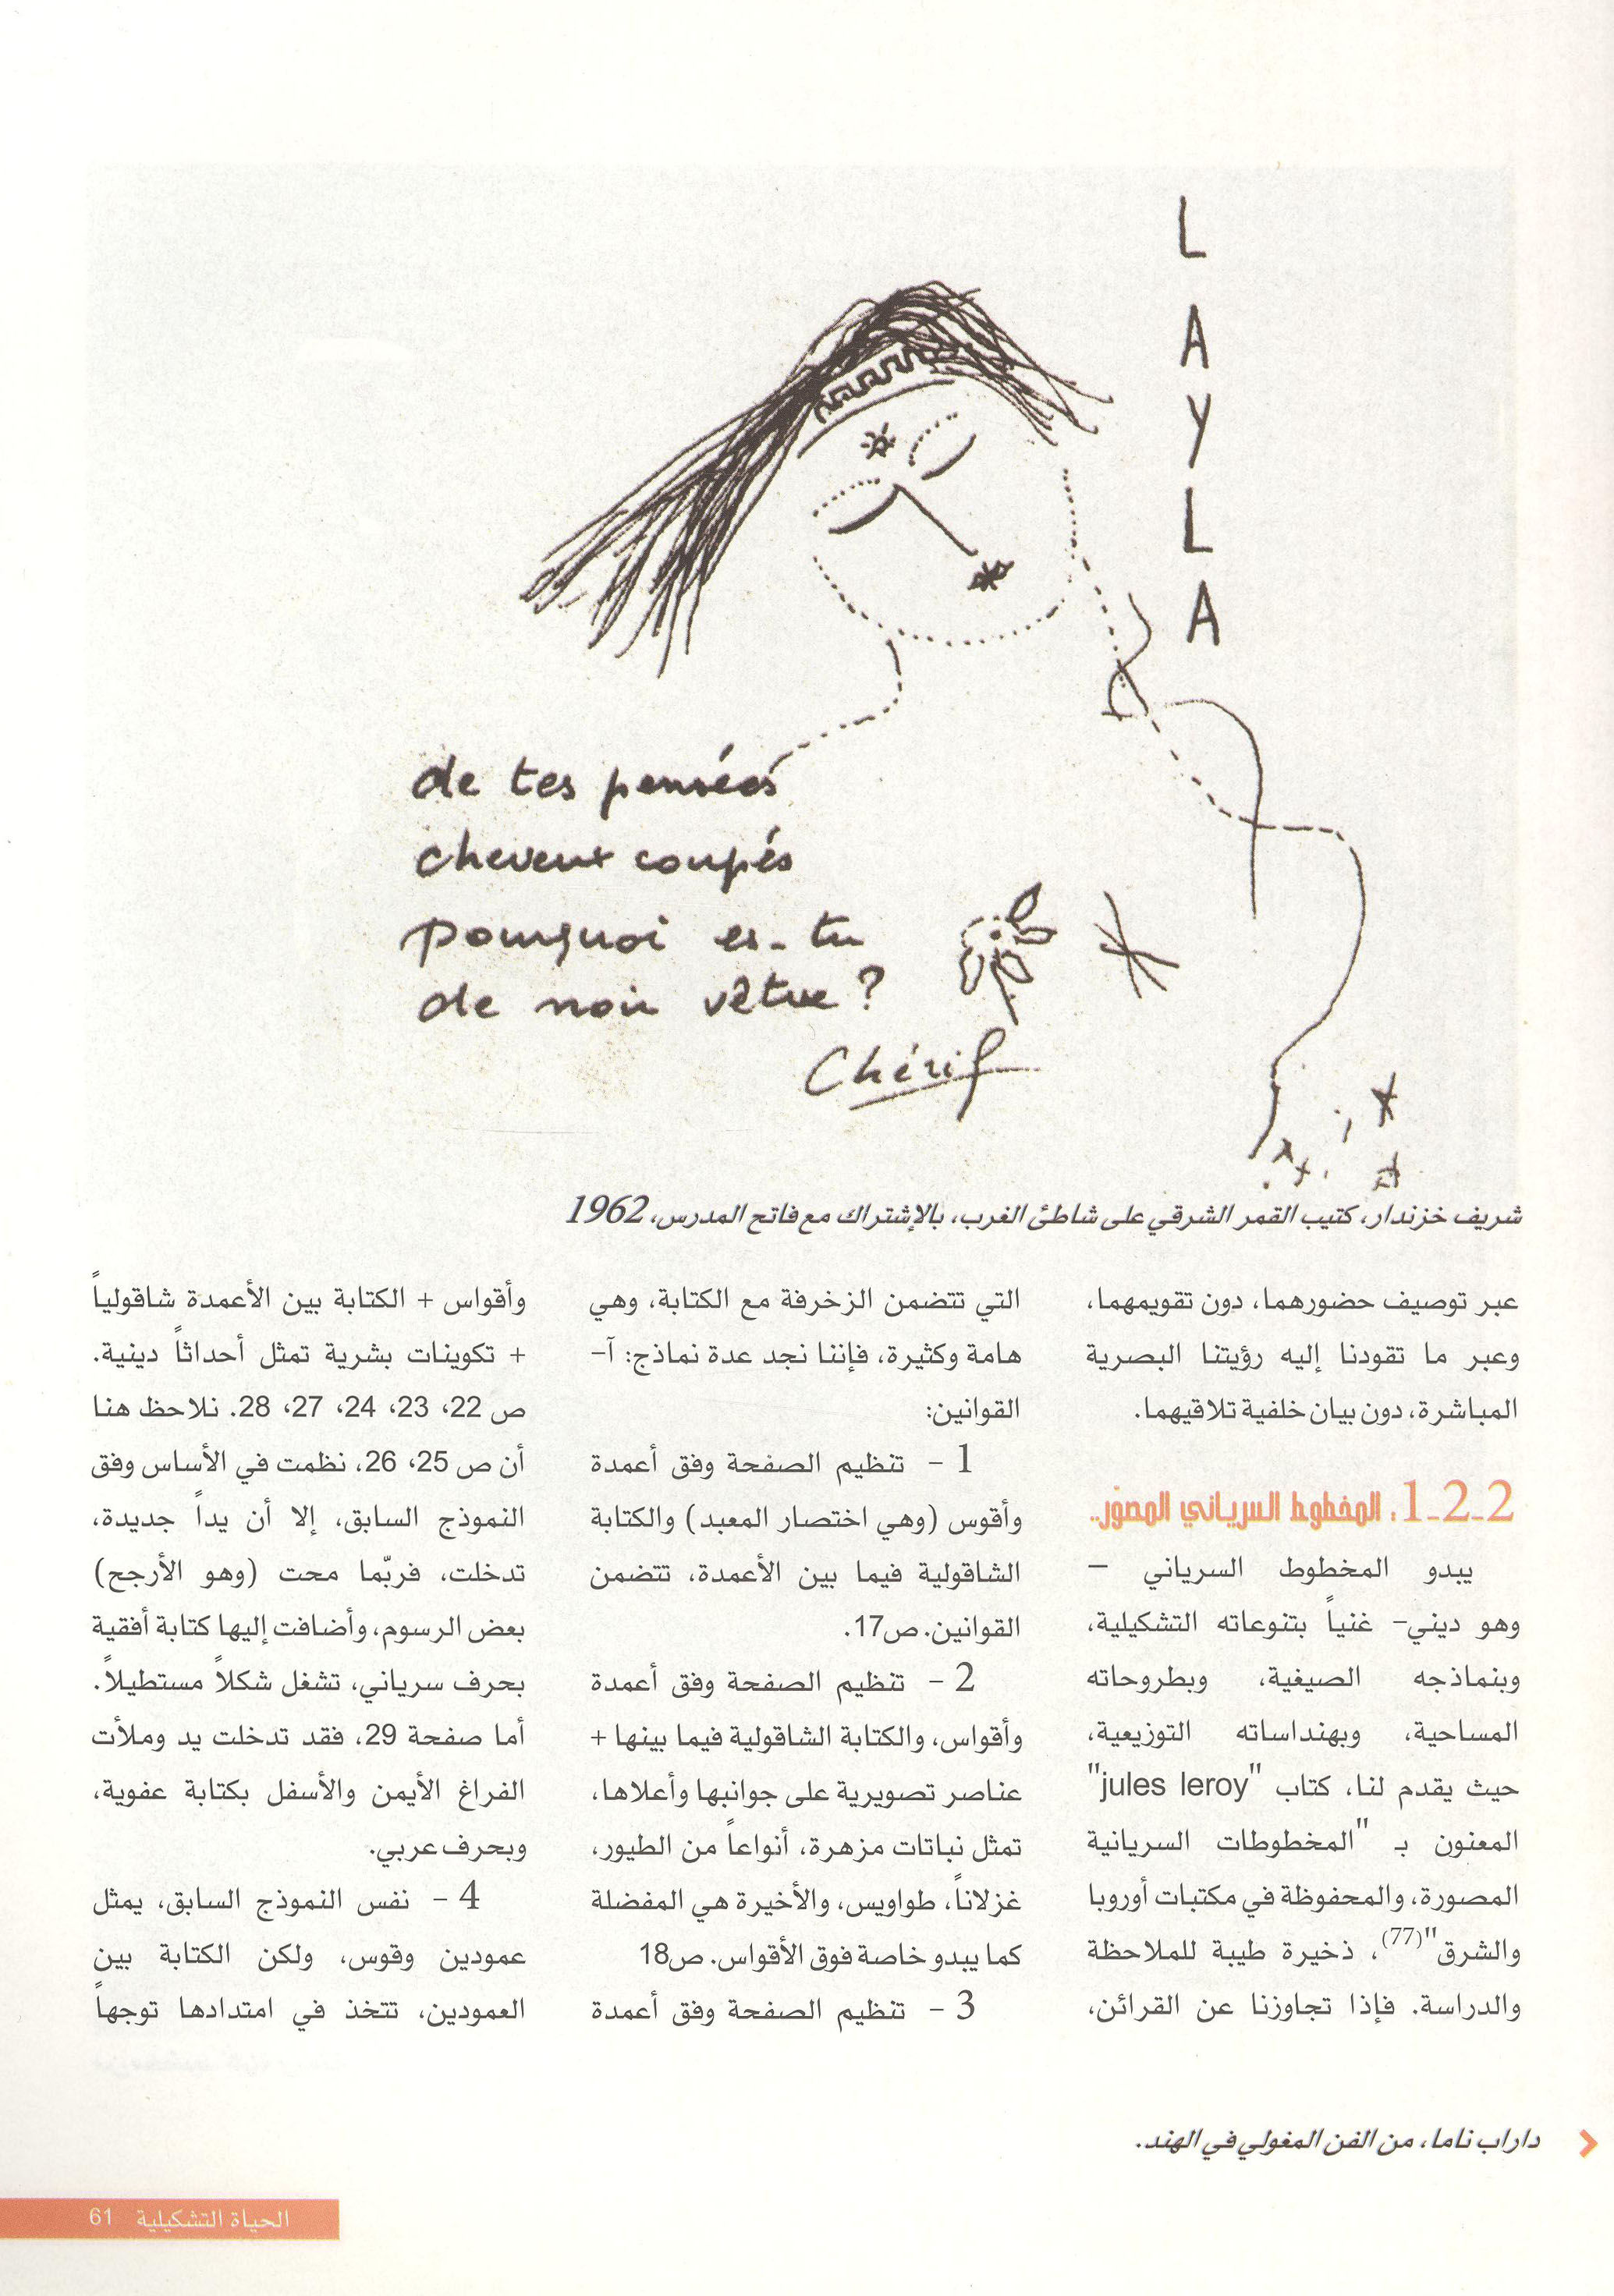 L
A
Y
L
A
de tes pensées
cheveux coupés
pourquoi es-tu
de noir vêtue ?
Chérif
شريف خزندار، كتيب القمر الشرقي على شاطئ الغرب، بالإشتراك مع فاتح المدرس، 1962
عبر توصيف حضورهما، دون تقويمهما،
وعبر ما تقودنا إليه رؤيتنا البصرية
المباشرة، دون بيان خلفية تلاقيهما.
1ـ2ـ2. المخطوط السرياني المصوّر..
يبدو المخطوط السرياني –
وهو ديني- غنياً بتنوعاته التشكيلية،
وبنماذجه الصيغية، وبطروحاته
المساحية، وبهنداساته التوزيعية،
حيث يقدم لنا، كتاب "jules leroy"
المعنون بـ "المخطوطات السريانية
المصورة، والمحفوظة في مكتبات أوروبا
والشرق"(77)، ذخيرة طيبة للملاحظة
والدراسة. فإذا تجاوزنا عن القرائن،
التي تتضمن الزخرفة مع الكتابة، وهي
هامة وكثيرة، فإننا نجد عدة نماذج: آ-
القوانين:
1 - تنظيم الصفحة وفق أعمدة
وأقوس (وهي اختصار المعبد) والكتابة
الشاقولية فيما بين الأعمدة، تتضمن
القوانين. ص17.
2 - تنظيم الصفحة وفق أعمدة
وأقواس، والكتابة الشاقولية فيما بينها +
عناصر تصويرية على جوانبها وأعلاها،
تمثل نباتات مزهرة، أنواعاً من الطيور،
غزلاناً، طواويس، والأخيرة هي المفضلة
كما يبدو خاصة فوق الأقواس. ص18
3 - تنظيم الصفحة وفق أعمدة
وأقواس + الكتابة بين الأعمدة شاقولياً
+ تكوينات بشرية تمثل أحداثاً دينية.
ص 22، 23، 24، 27، 28. نلاحظ هنا
أن ص 25، 26، نظمت في الأساس وفق
النموذج السابق، إلا أن يداً جديدة،
تدخلت، فربّما محت (وهو الأرجح)
بعض الرسوم، وأضافت إليها كتابة أفقية
بحرف سرياني، تشغل شكلاً مستطيلاً.
أما صفحة 29، فقد تدخلت يد وملأت
الفراغ الأيمن والأسفل بكتابة عفوية،
وبحرف عربي.
4 - نفس النموذج السابق، يمثل
عمودين وقوس، ولكن الكتابة بين
العمودين، تتخذ في امتدادها توجهاً
داراب ناما، من الفن المغولي في الهند.
الحياة التشكيلية 61